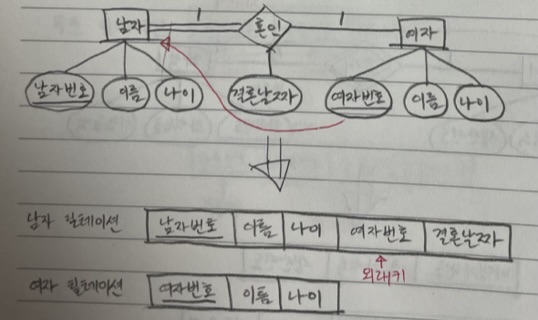 1 1
남자 혼인 여자
남자번호 이름 나이 결혼날짜 여자번호 이름 나이
남자 릴레이션 남자번호 이름 나이 여자번호 결혼날짜
외래키
여자 릴레이션 여자번호 이름 나이